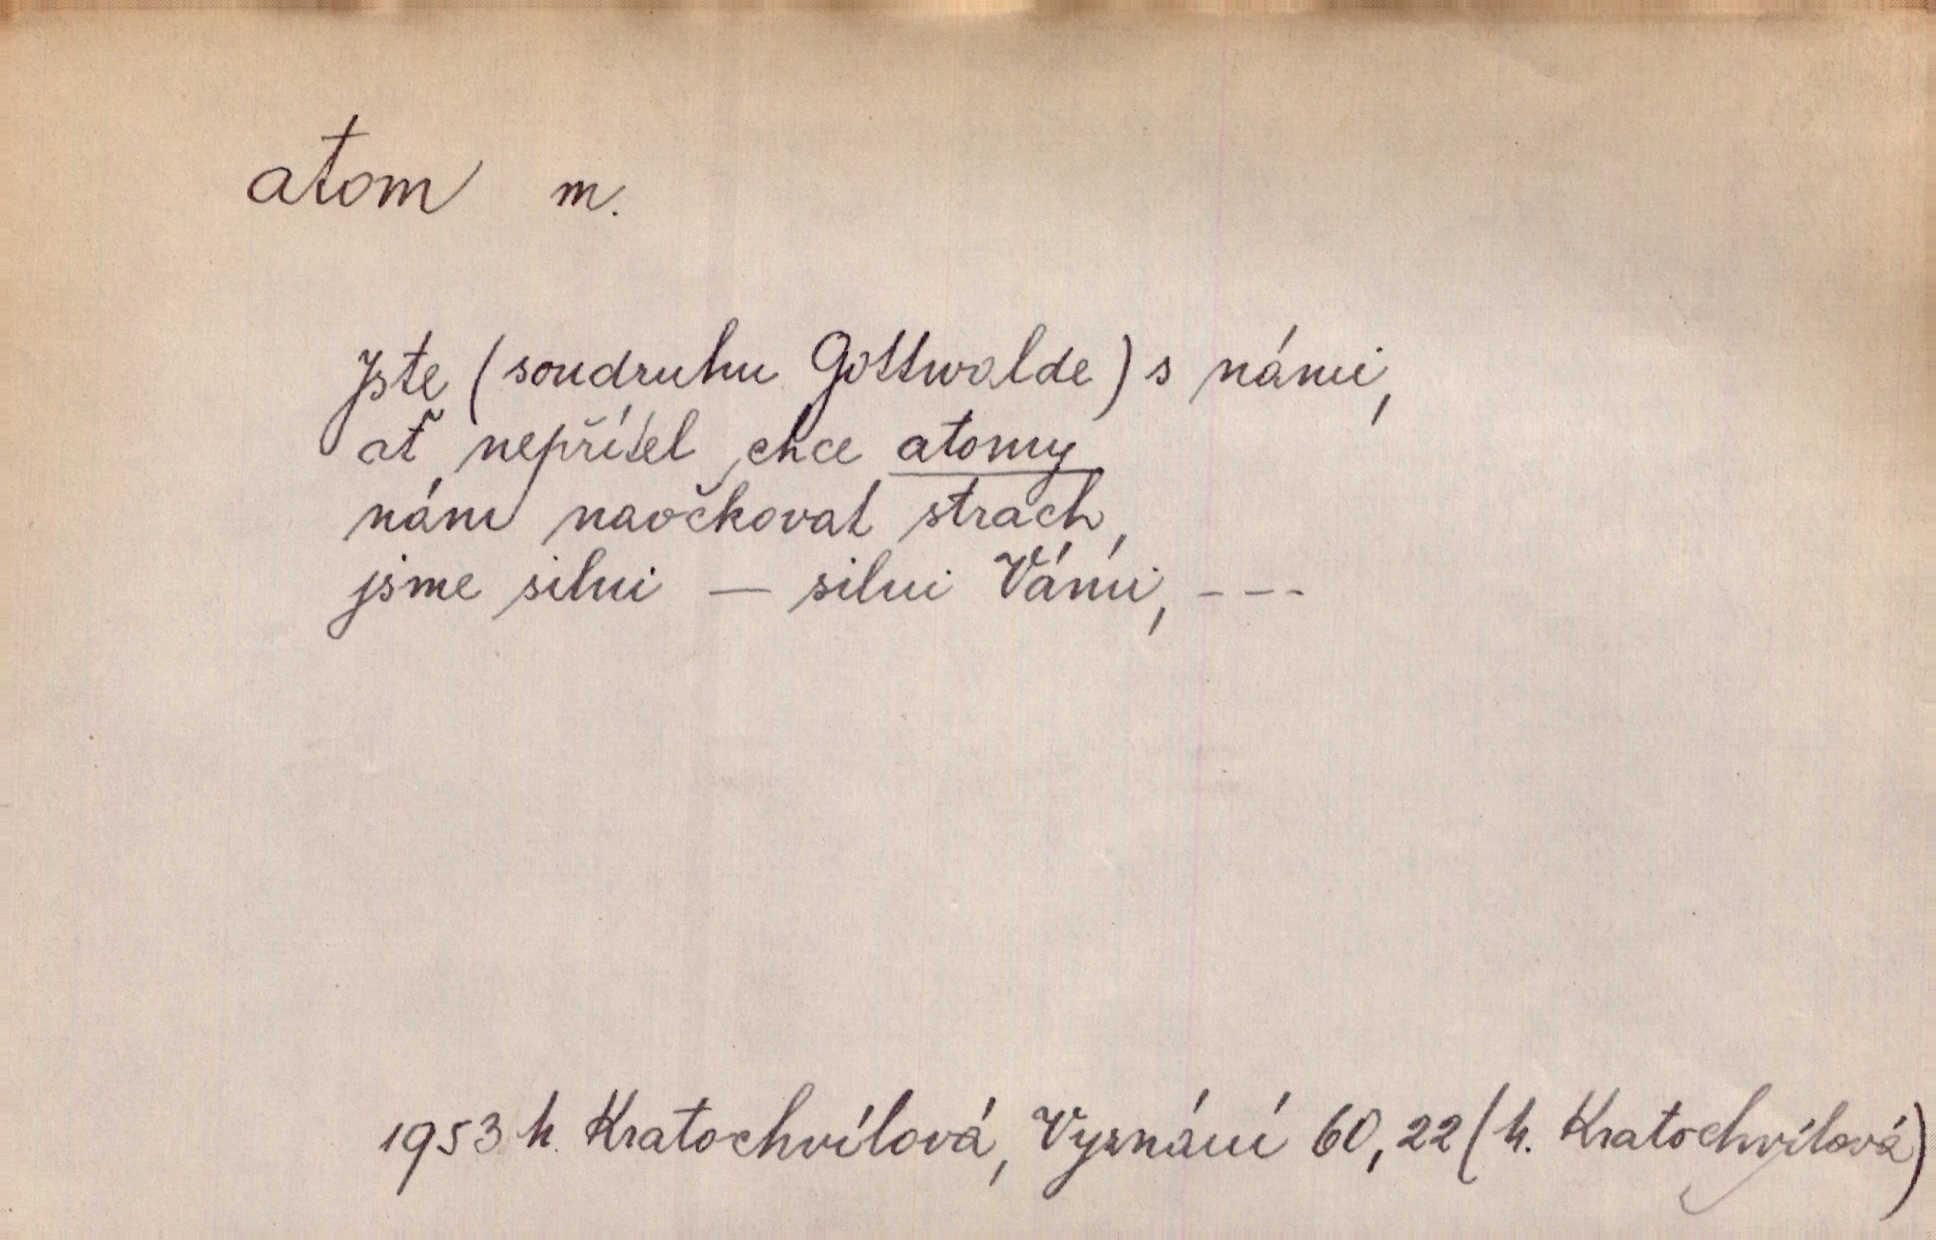 atom m.
Jste (soudruhu Gottwalde) s námi,
ať nepřítel chce atomy
nám naočkovat strach,
jsme silni — silni Vámi, ---
1953 h. Kratochvílová, Vyznání 60, 22 (h. Kratochvílová)